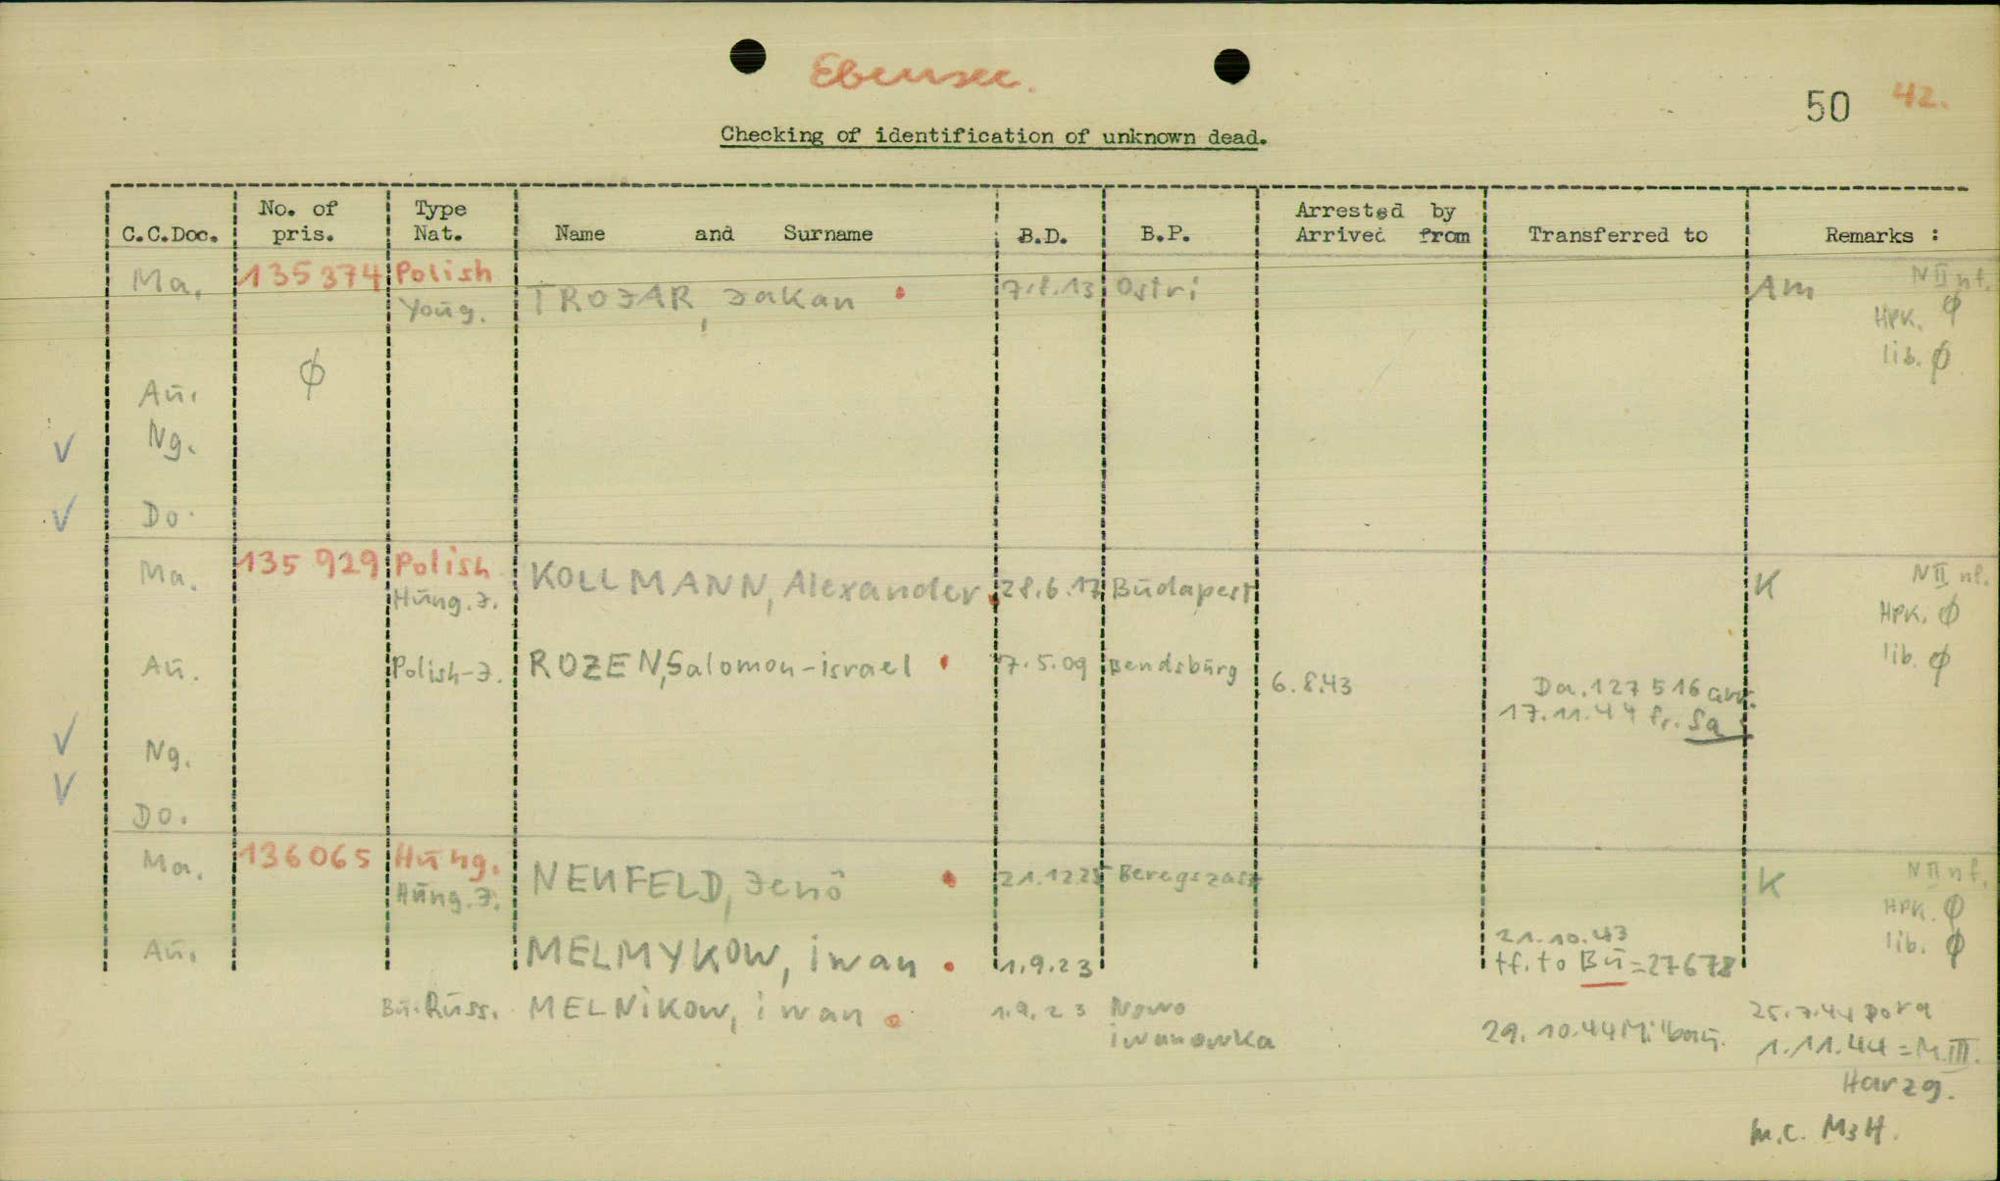 Ebensee.
50 42.
Checking of identification of unknown dead.
C.C.Doc. No. of pris. Type Nat. Name and Surname B.D. B.P. Arrested by Arrived from Transferred to Remarks :
Ma. 135374 Polish Am N II nf.
Yoŭg. TROJAR, Jakan 7.8.13 Ostri HPK. ϕ
lib. ϕ
Aŭ. ϕ
√ Ng.
√ Do.
Ma. 135 929 Polish KOLLMANN, Alexander 28.6.17 Bŭdapest K N II nf.
Hŭng.J. HPK. ϕ
Aŭ. Polish-J. ROZEN, Salomon-israel 7.5.09 Bendsbŭrg 6.8.43 lib. ϕ
Da. 127 516 arr.
17.11.44 fr. Sa
√ Ng.
√ Do.
Ma. 136065 Hŭng. N II nf.
Hŭng.J. NEUFELD, Jenö 21.12.25 Beregszasz K HPK. ϕ
21.10.43 lib. ϕ
Aŭ. MELMYKOW, iwan 1.9.23 tf. to Bŭ=27678
Bŭ. Rŭss. MELNiKow, iwan 1.9.23 Nowo 25.7.44 Dora
iwanowka 29.10.44 Milbaŭ. 1.11.44 = M.III.
Harzg.
m.c. M3H.